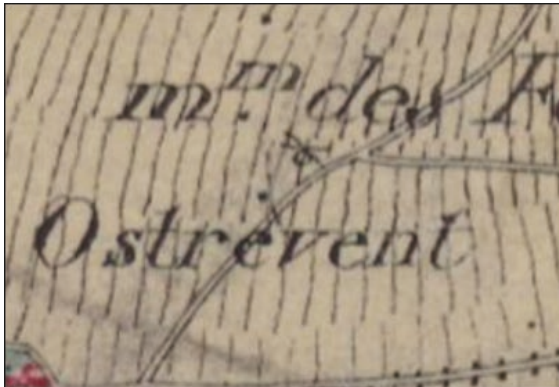 mᵐ. des F
Ostrévent